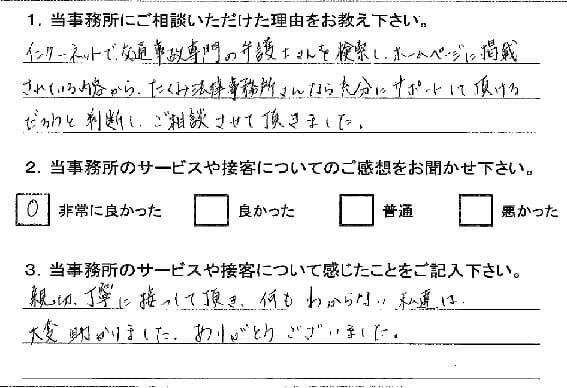 1. 当事務所にご相談いただけた理由をお教え下さい。
インターネットで、交通事故専門の弁護士さんを検索し、ホームページに掲載
されている内容から、たくみ法律事務所さんなら充分にサポートして頂ける
だろうと判断し、ご相談させて頂きました。
2. 当事務所のサービスや接客についてのご感想をお聞かせ下さい。
○ 非常に良かった 良かった 普通 悪かった
3. 当事務所のサービスや接客について感じたことをご記入下さい。
親切、丁寧に接っして頂き、何もわからない私達は、
大変助かりました。ありがとうございました。